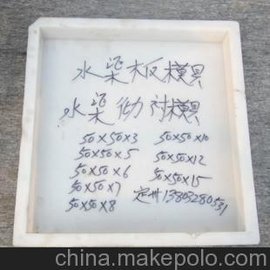 水染板模具
水染 模具
50×50×3 50×50×10
50×50×5 50×50×12
50×50×6 50×50×15
50×50×7 定州 13803280531
50×50×8
china.makepolo.com